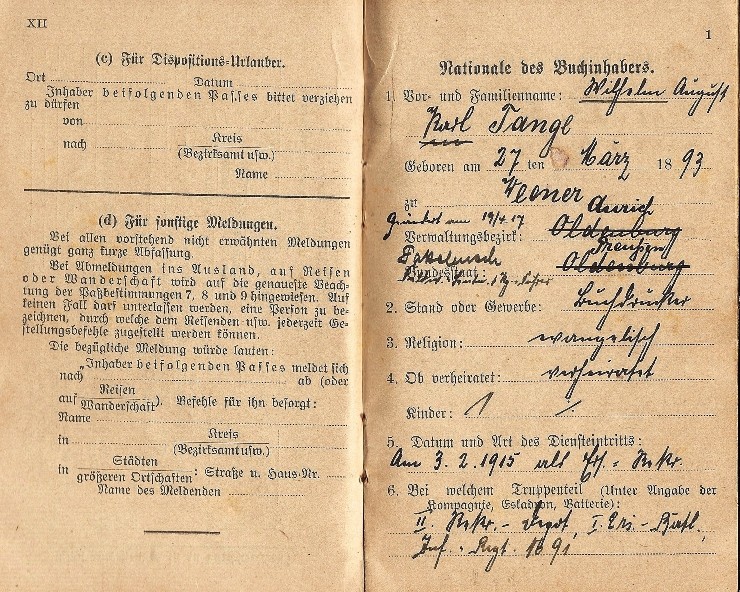 XII
(c) Für Dispositions-Urlauber.
Ort Datum
Inhaber beifolgenden Passes bittet verziehen
zu dürfen
von
nach Kreis
(Bezirksamt usw.)
Name
(d) Für sonstige Meldungen.
Bei allen vorstehend nicht erwähnten Meldungen
genügt ganz kurze Abfassung.
Bei Abmeldungen ins Ausland, auf Reisen
oder Wanderschaft wird auf die genaueste Beach-
tung der Paßbestimmungen 7, 8 und 9 hingewiesen. Auf
keinen Fall darf unterlassen werden, eine Person zu be-
zeichnen, durch welche dem Reisenden usw. jederzeit Ge-
stellungsbefehle zugestellt werden können.
Die bezügliche Meldung würde lauten:
„Inhaber beifolgenden Passes meldet sich
nach ab (oder
auf Reisen
Wanderschaft). Befehle für ihn besorgt:
Name
in Kreis
(Bezirksamt usw.)
in Städten
größeren Ortschaften: Straße u. Haus-Nr.
Name des Meldenden
1
Nationale des Buchinhabers.
1. Vor- und Familienname: Wilhelm August
Karl Tange
Geboren am 27 ten März 1893
zu Weener Aurich
Geändert am 19/4 17
Verwaltungsbezirk: Oldenburg
Preußen
Bundesstaat: Oldenburg
2. Stand oder Gewerbe: Buchdrucker
3. Religion: evangelisch
4. Ob verheiratet: verheiratet
Kinder: 1
5. Datum und Art des Diensteintritts:
Am 3.2.1915 als Ers.-Rekr.
6. Bei welchem Truppenteil (Unter Angabe der
Kompagnie, Eskadron, Batterie):
II. Rekr.-Depot, I. Ers.-Batl.
Inf.-Regt. No 91